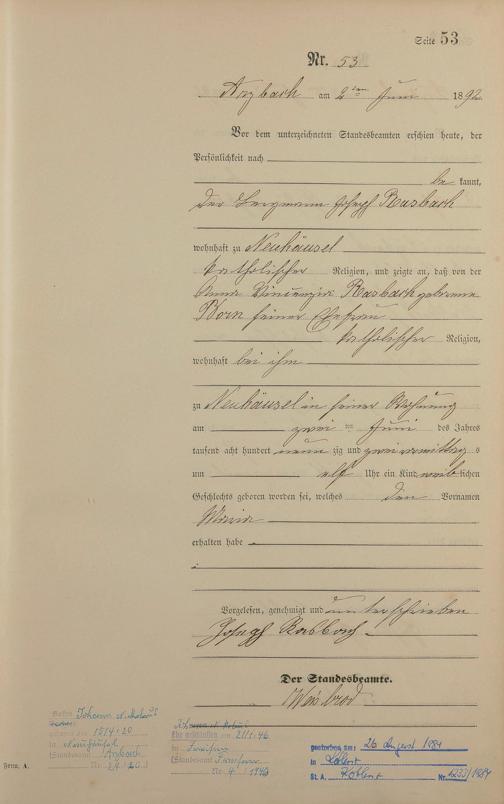 Seite 53
Nr. 53
Arzbach am 2ten Juni 1892
Vor dem unterzeichneten Standesbeamten erschien heute, der
Persönlichkeit nach
be kannt,
der Bergmann Joseph Rasbach
wohnhaft zu Neuhäusel
katholischer Religion, und zeigte an, daß von der
Anna Rasbach geborene
Born seiner Ehefrau
katholischer Religion,
wohnhaft bei ihm
zu Neuhäusel in seiner Wohnung
am zwei ten Juni des Jahres
tausend acht hundert neun zig und zwei vormittags
um elf Uhr ein Kind weiblichen
Geschlechts geboren worden sei, welches den Vornamen
Maria
erhalten habe
Vorgelesen, genehmigt und unterschrieben
Joseph Rasbach
Der Standesbeamte.
Form. A.
Johann
in Neuhäusel
(Standesamt Arzbach
Ehe geschlossen am
in
(Standesamt
Nr. 4
gestorben am: 26 August 1984
in Koblenz
St. A. Koblenz Nr. 1233/1984